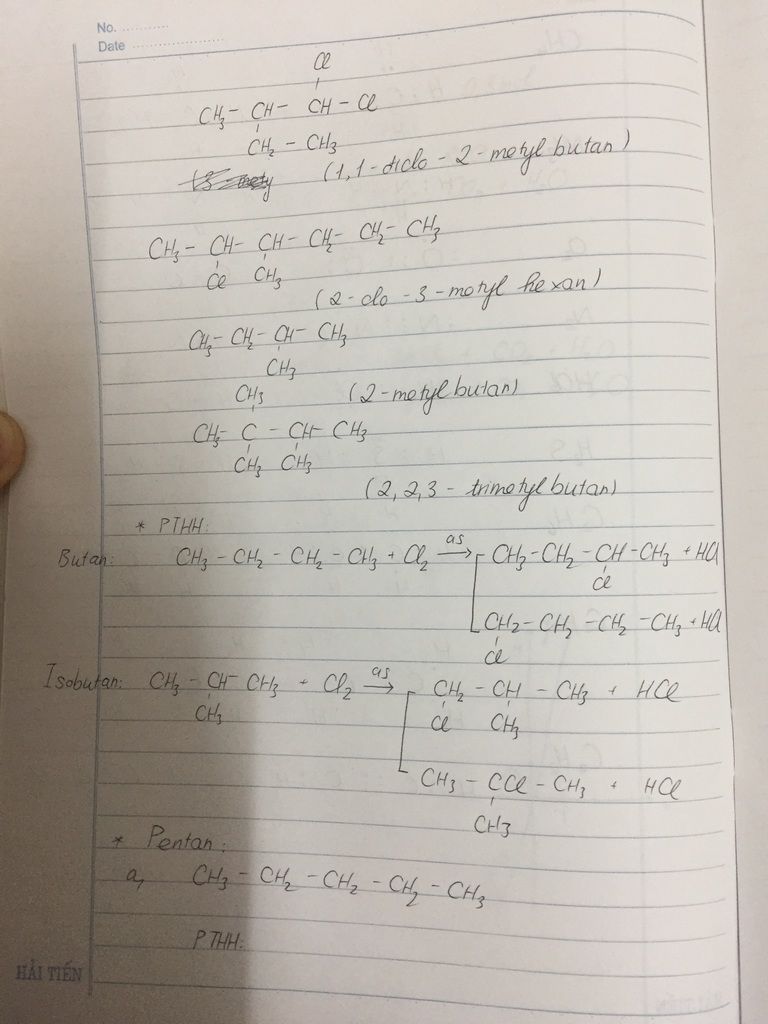 No. ..................
Date ..........................
Cl
CH₃ - CH - CH - Cl
CH₂ - CH₃
(1,1-diclo - 2 - metyl butan)
CH₃ - CH - CH - CH₂ - CH₂ - CH₃
Cl CH₃
(2 - clo - 3 - metyl hexan)
CH₃ - CH₂ - CH - CH₃
CH₃
(2 - metyl butan)
CH₃
CH₃ - C - CH - CH₃
CH₃ CH₃
(2, 2, 3 - trimetyl butan)
* PTHH:
Butan: CH₃ - CH₂ - CH₂ - CH₃ + Cl₂ as→ CH₃ - CH₂ - CH - CH₃ + HCl
Cl
CH₂ - CH₂ - CH₂ - CH₃ + HCl
Cl
Isobutan: CH₃ - CH - CH₃ + Cl₂ as→ CH₂ - CH - CH₃ + HCl
CH₃ Cl CH₃
CH₃ - CCl - CH₃ + HCl
CH₃
* Pentan:
a, CH₃ - CH₂ - CH₂ - CH₂ - CH₃
PTHH:
HẢI TIẾN